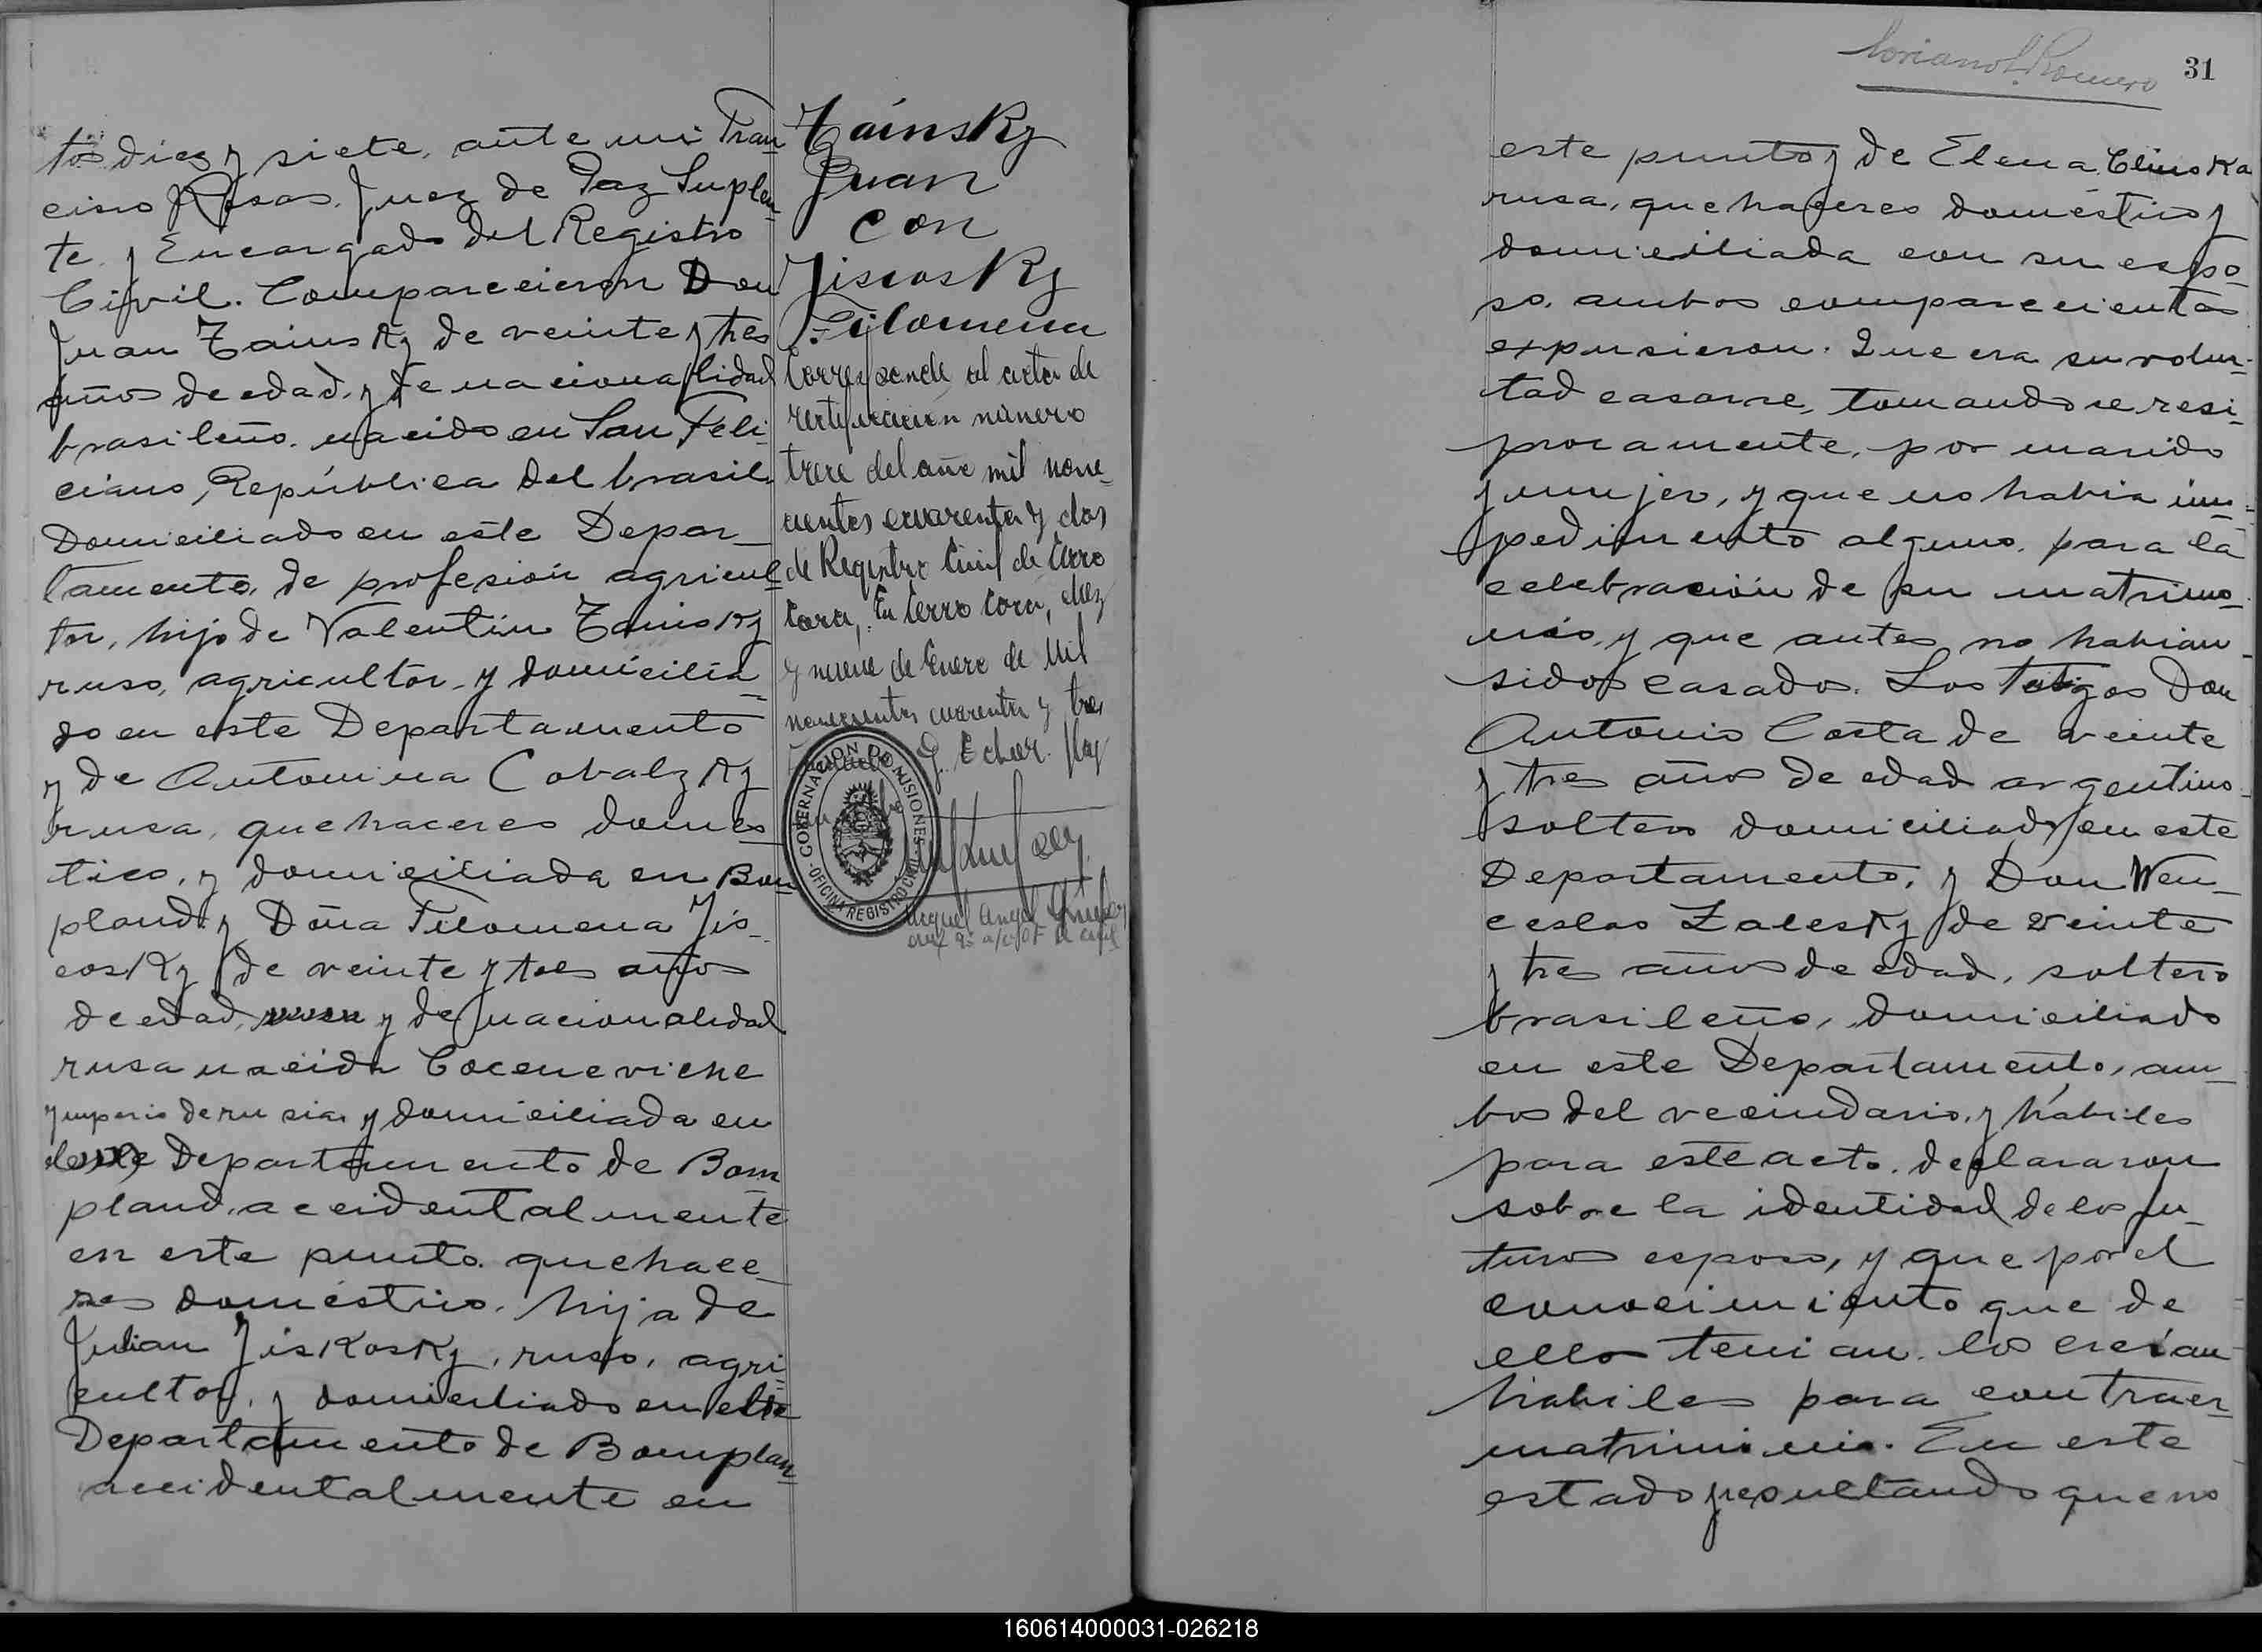 tos diez y siete, ante mi Fran
cisco Rosas. Juez de Paz Suplen
te. y Encargado del Registro
Civil. Comparecieron Don
Juan Zainsky de veinte y tres
años de edad, y de nacionalidad
brasileño. nacido en San Feli
ciano, República del brasil.
Domiciliado en este Depar_
tamento, de profesión agricul
tor, hijo de Valentin Zainsky
ruso, agricultor y domicilia
do en este Departamento
y de Antonina Cobalzky
rusa, quehaceres domes
tico, y domiciliada en Bon
pland. y Doña Filomena Jis_
cosky de veinte y tres años
de edad, y de nacionalidad
rusa nacida Coceneviche
ymperio de rusia y domiciliada en
Departamento de Bom
pland, accidentalmente
en este punto. quehace_
res doméstico. hija de
Julian Jiskosky, ruso, agri
cultor, y domiciliado en este
Departamento de Bomplan
accidentalmente en
Zaínsky
Juan
con
Jiscosky
Filomena
Corresponde al acta de
rectificación número
trece del año mil nove_
cientos cuarenta y dos
de Registro Civil de Cerro
Cora, En Cerro Cora, diez
y nueve de Enero de Mil
novecientos cuarenta y tres
GOBERNACION DE MISIONES
OFICINA REGISTRO CIVIL
Miguel Angel
Romero
31
este punto y de Elena Clinska
rusa, quehaceres doméstico y
domiciliada con su espo
so, ambos comparecientes
expusieron. Que era su volun
tad casarse, tomandose resi
procamente, por marido
y mujer, y que no habia im
pedimento alguno. para la
celebración de su matrimo_
nio, y que antes no habian
sidos casados. Los testigos Don
Antonio Costa de veinte
y tres años de edad argentino
soltero domiciliado en este
Departamento, y Don Wen_
ceslao Zalesky de veinte
y tres años de edad, soltero
brasileño, domiciliado
en este Departamento, am_
bos del vecindario, y hábiles
para este acto. declararon
sobre la identidad de los fu_
turos esposo, y que por el
conocimiento que de
ellos tenian. los creían
habiles para contraer
matrimonio. En este
estado y resultando que no
160614000031-026218